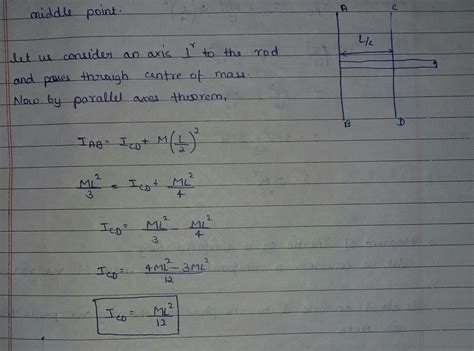 middle point.
A C
let us consider an axis Lʳ to the rod
L/2
and passes through centre of mass.
Now by parallel axes theorem,
B D
I_AB = I_CD + M(L/2)²
ML²/3 = I_CD + ML²/4
I_CD = ML²/3 - ML²/4
I_CD = 4ML² - 3ML²/12
I_CD = ML²/12